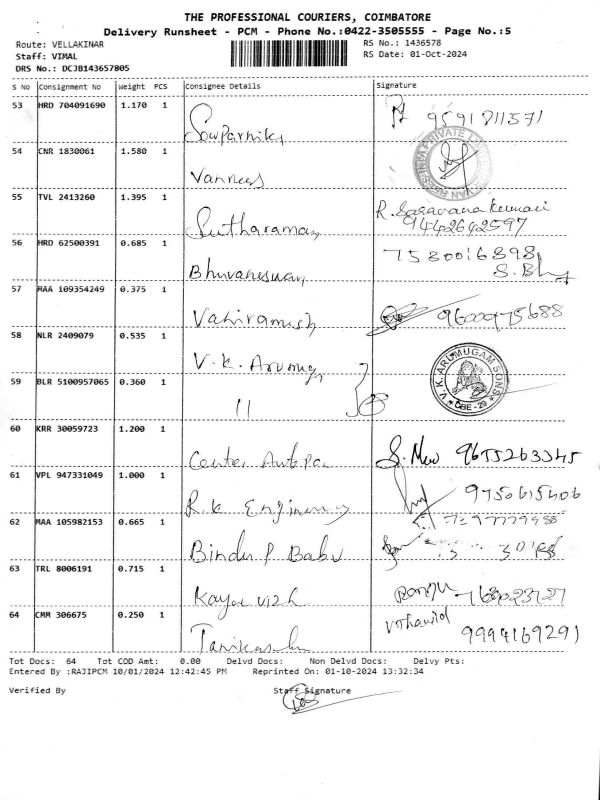 THE PROFESSIONAL COURIERS, COIMBATORE
Delivery Runsheet - PCM - Phone No.:0422-3505555 - Page No.:5
Route: VELLAKINAR
RS No.: 1436578
Staff: VIMAL
RS Date: 01-Oct-2024
DRS No.: DCJB143657805
S No Consignment No Weight PCS Consignee Details Signature
53 HRD 704091690 1.170 1
Sowparnika 9591811571
54 CNR 1830061 1.580 1
Vannees
55 TVL 2413260 1.395 1
Seetharaman R. Saravana Kumari
9442642597
56 HRD 62500391 0.685 1
Bhuvaneswari 7530016898
57 MAA 109354249 0.375 1
9600975688
58 NLR 2409079 0.535 1
V.K. Arumuga
V.K. ARUMUGAM SONS
* CBE - 29 *
59 BLR 5100957065 0.360 1
11
60 KRR 30059723 1.200 1
9655263345
61 VPL 947331049 1.000 1
R.K Engineering 9750615406
62 MAA 105982153 0.665 1
Bindu P Babu
63 TRL 8006191 0.715 1
64 CMM 306675 0.250 1
9994169291
Tot Docs: 64 Tot COD Amt: 0.00 Delvd Docs: Non Delvd Docs: Delvy Pts:
Entered By :RAJIPCM 10/01/2024 12:42:45 PM Reprinted On: 01-10-2024 13:32:34
Verified By Staff Signature